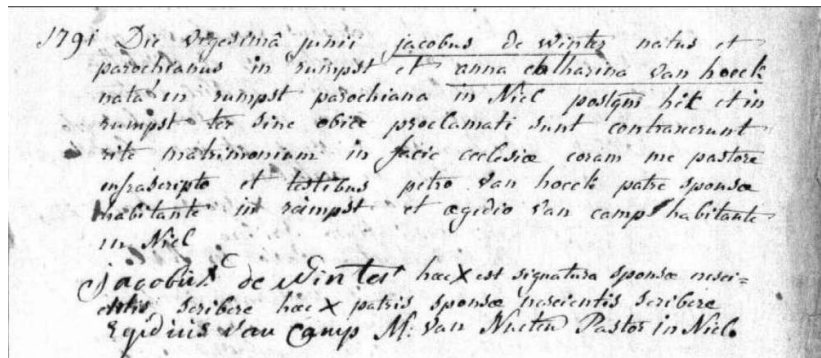 1791 Die vigesimâ junii jacobus de winter natus et
parochianus in rumpst et anna catharina van hoeck
nata in rumpst parochiana in Niel postqm hîc et in
rumpst ter sine obice proclamati sunt contraxerunt
rite matrimonium in facie ecclesiæ coram me pastore
infrascripto et testibus petro van hoeck patre sponsæ
habitante in rumpst et ægidio van camp habitante
in Niel
jacobus de Winter haec X est signatura sponsæ nesci=
entis scribere haec X patris sponsæ nescientis scribere
Egidius van Camp M: Van Nueten Pastor in Niel